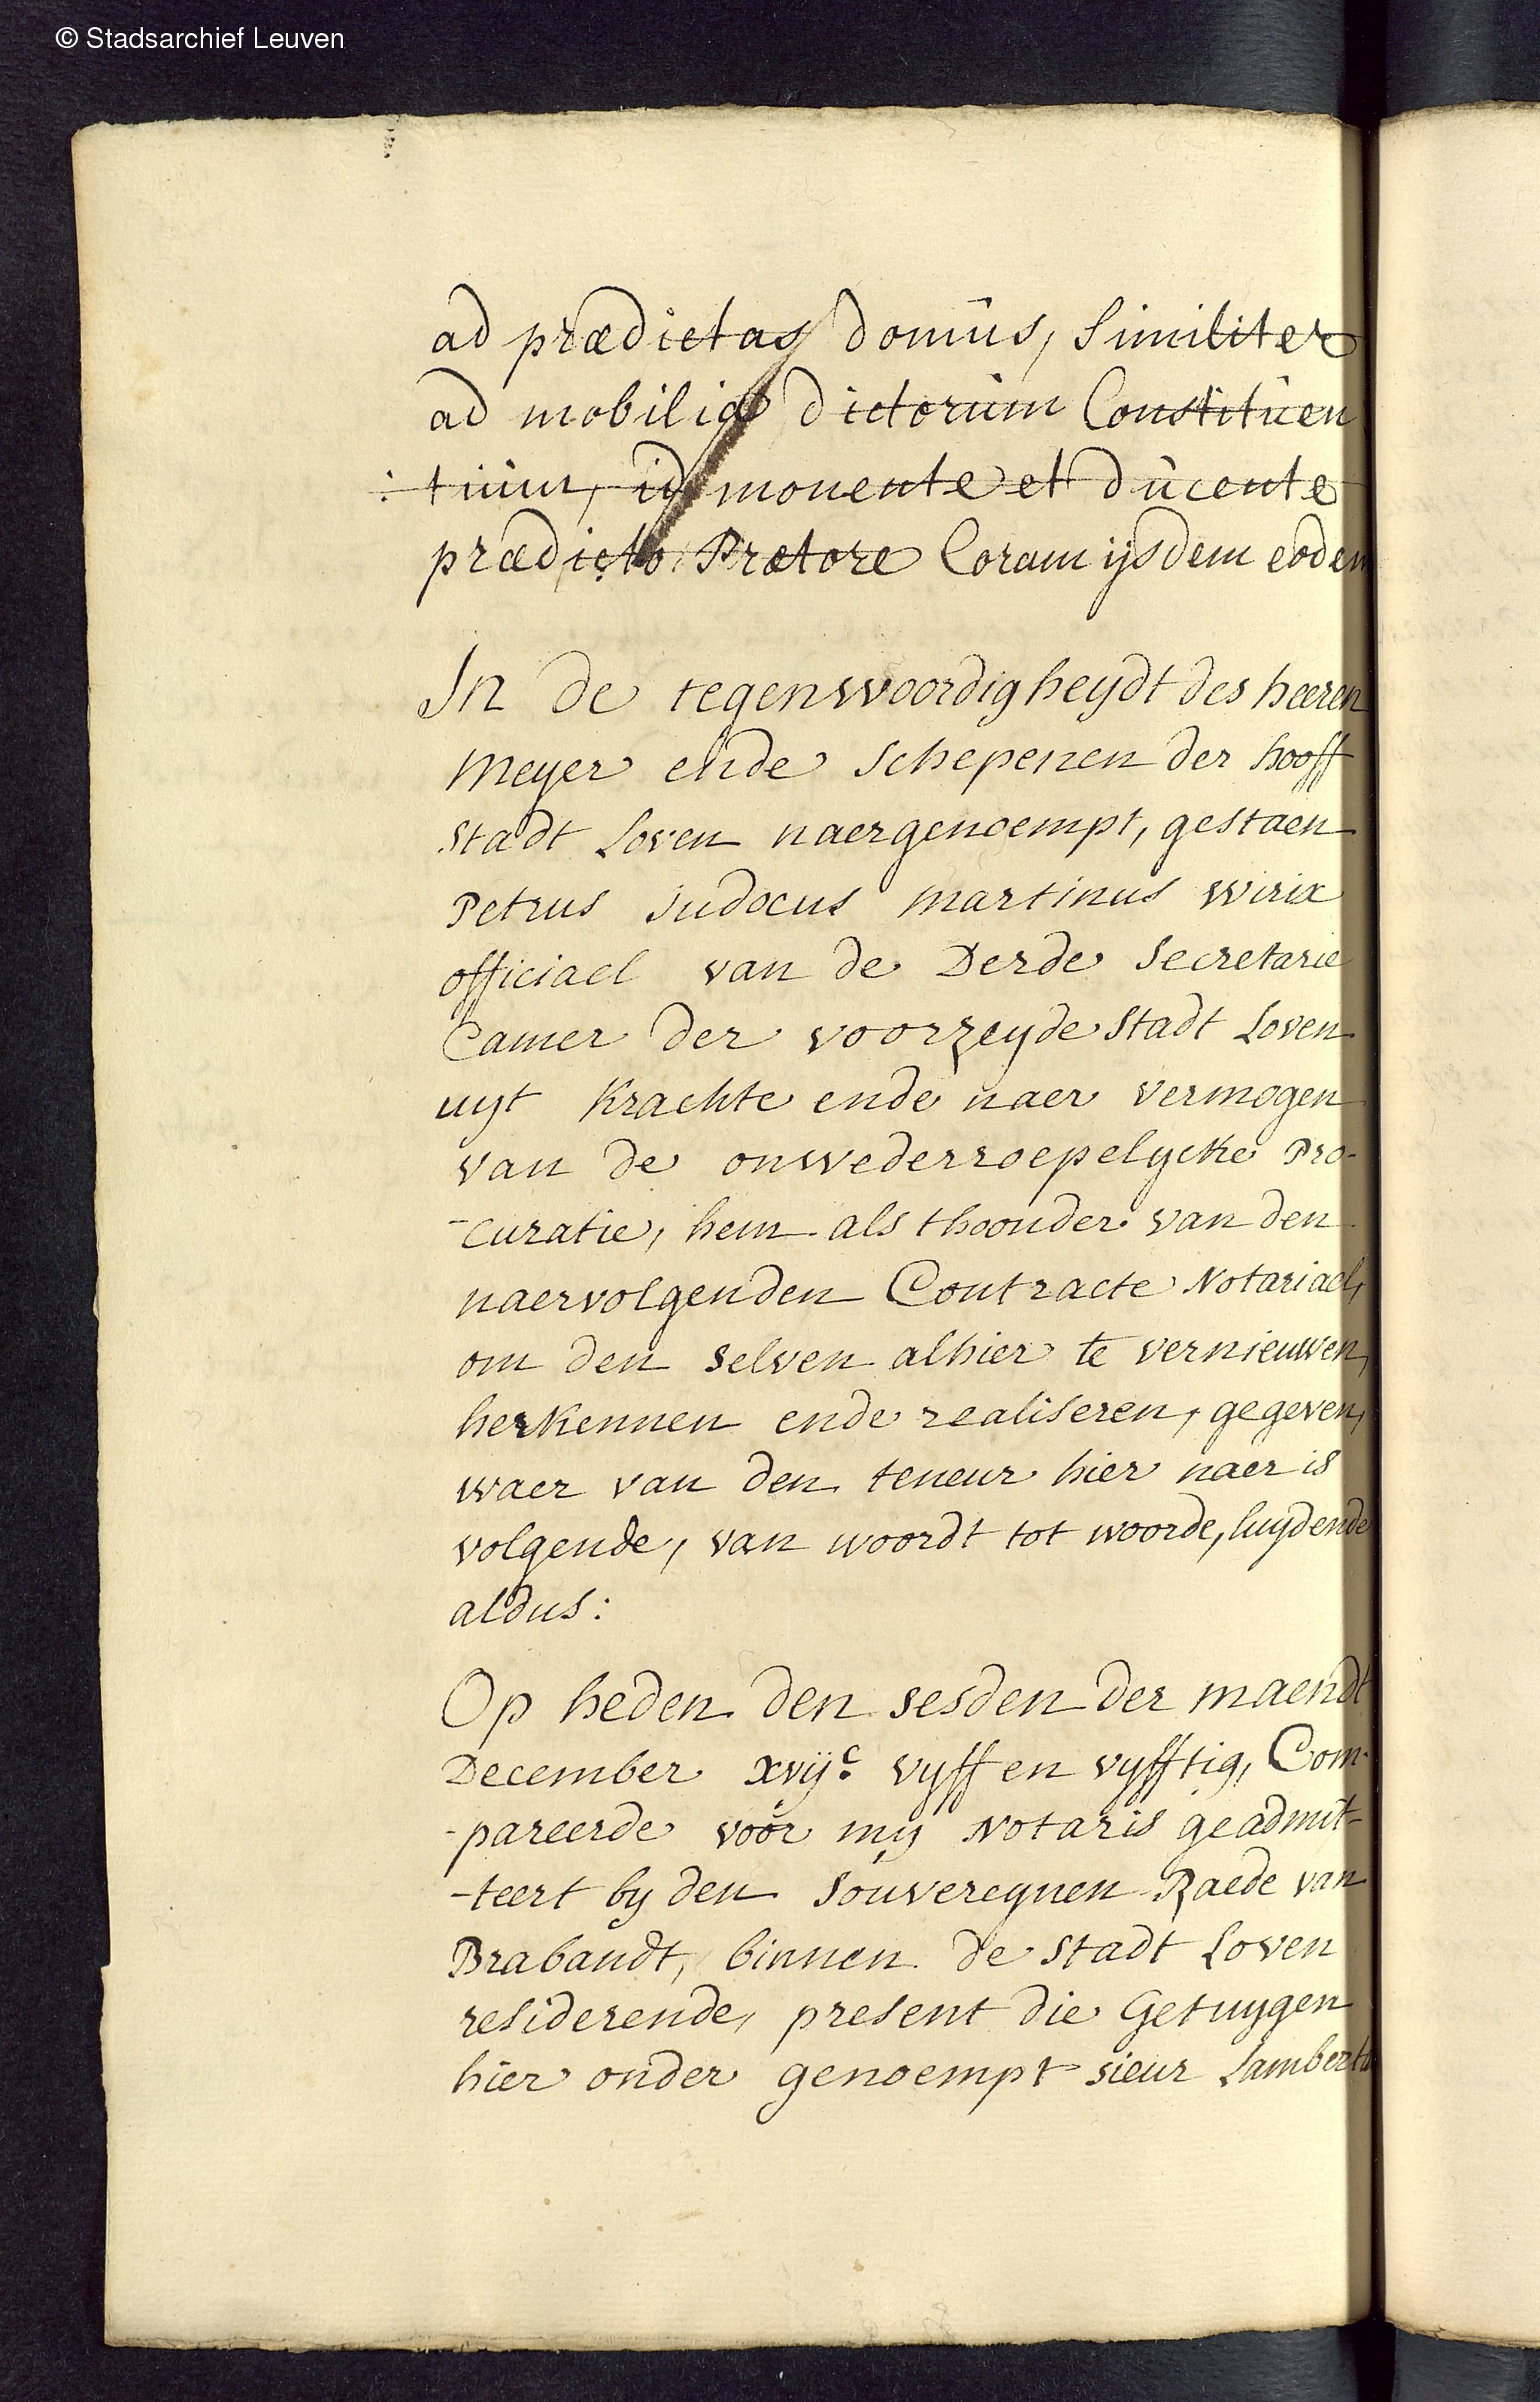 © Stadsarchief Leuven
ad prædictas domûs, Similiter
ad mobilia dictorûm Constitûen
: tiûm, id monente et dûcente
prædicto Prætore Coram ijsdem eodem
In de tegenwoordigheydt des heeren
Meyer ende Schepenen der hooff
stadt Loven naergenoempt, gestaen
Petrus Judocus Martinus Wirix
officiael van de Derde Secretarie
Camer der voorzeyde Stadt Loven
uyt Krachte ende naer vermogen
van de onwederroepelycke Pro-
-curatie, hem als thoonder van den
naervolgenden Contracte Notariael,
om den selven alhier te vernieuwen,
herKennen ende realiseren, gegeven,
waer van den teneur hier naer is
volgende, van woordt tot woorde, luydende
aldus:
Op heden den sesden der maendt
December xvijc. vyff en vyfftig, Com-
-pareerde voor my Notaris geadmit-
-teert by den Souvereynen Raede van
Brabandt, binnen de Stadt Loven
residerende, present die Getuygen
hier onder genoempt sieur Lambertu